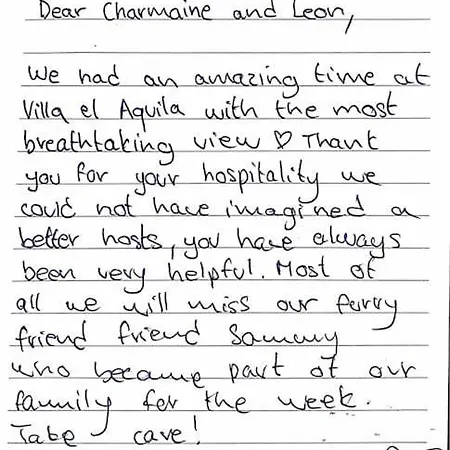 Dear Charmaine and Leon,
We had an amazing time at
Villa el Aquila with the most
breathtaking view ♡ Thank
you for your hospitality we
could not have imagined a
better hosts, you have always
been very helpful. Most of
all we will miss our furry
friend friend Sammy
who became part of our
family for the week.
Take care!